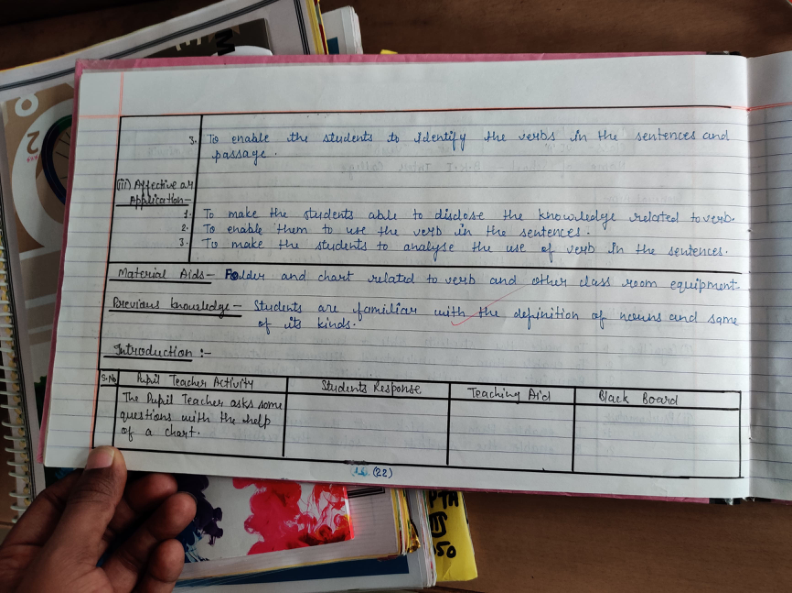 3. To enable the students to identify the verbs in the sentences and
passage.
(iii) Affective or
Application-
1. To make the students able to disclose the knowledge related to verb.
2. To enable them to use the verb in the sentences.
3. To make the students to analyse the use of verb in the sentences.
Material Aids- Folder and chart related to verb and other class room equipment.
Previous knowledge- Students are familiar with the definition of nouns and some
of its kinds.
Introduction :-
S.No Pupil Teacher Activity Students Response Teaching Aid Black Board
The Pupil Teacher asks some
questions with the help
of a chart.
(22)
50